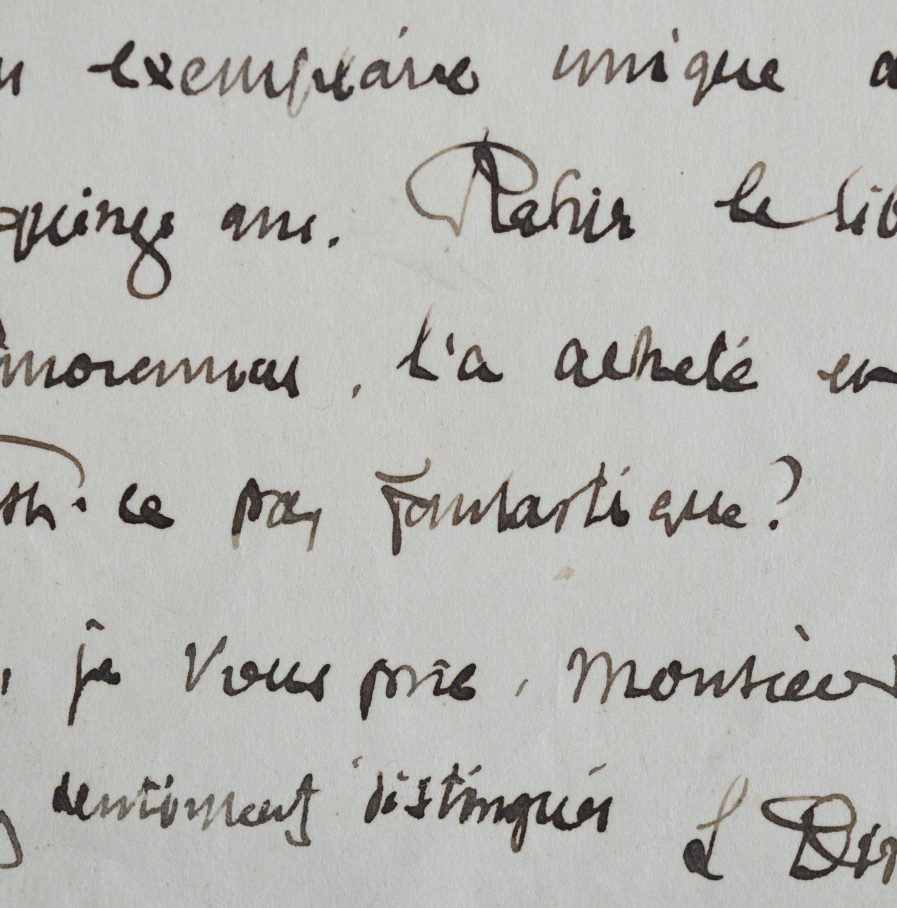 exemplaire unique
quinze ans. Rahir le lib
l'a acheté en
ce pas fantastique?
, je vous prie, Monsieur
sentiments distingués L De